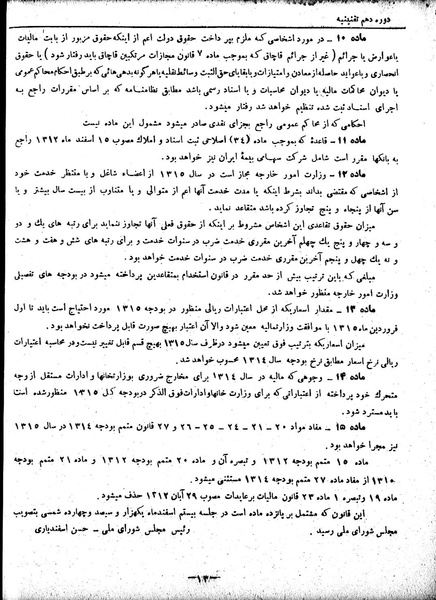 دوره دهم تقنینیه
ماده ۱۰ ــ در مورد اشخاصی که ملزم بپرداخت حقوق دولت اعم از اینکه حقوق مزبور از بابت مالیات
یا عوارض یا جرائم (غیر از جرائم قاچاق که بموجب ماده ۷ قانون مجازات مرتکبین قاچاق باید رفتار شود) یا حقوق
انحصاری و یا عواید حاصله از معادن و امتیازات و یا بقایای حق الثبت و سائط نقلیه یا هر گونه بدهی هائی که بر طبق احکام محاکم عمومی
یا دیوان محاکمات مالیه یا دیوان محاسبات و یا اسناد رسمی باشد مطابق نظامنامه که بر اساس مقررات راجع به
اجرای اسناد ثبت شده تنظیم خواهد شد رفتار میشود.
احکامی که از محاکم عمومی راجع بجزای نقدی صادر میشود مشمول این ماده نیست
ماده ۱۱ ــ قاعدۀ که بموجب ماده (۳۴) اصلاحی ثبت اسناد و املاک مصوب ۱۵ اسفند ماه ۱۳۱۲ راجع
به بانکها مقرر است شامل شرکت سهامی بیمۀ ایران نیز خواهد بود.
ماده ۱۲ ــ وزارت امور خارجه مجاز است در سال ۱۳۱۵ از اعضاء شاغل و یا منتظر خدمت خود
از اشخاصی که مقتضی بداند بشرط اینکه یا مدت خدمت آنها اعم از متوالی و یا متناوب از بیست سال بیشتر و یا
سن آنها از پنجاه و پنج تجاوز کرده باشد متقاعد نماید.
میزان حقوق تقاعدی این اشخاص مشروط بر اینکه از حقوق فعلی آنها تجاوز ننماید برای رتبه های یک و دو
و سه و چهار و پنج یک چهلم آخرین مقرری خدمت ضرب در سنوات خدمت و برای رتبه های شش و هفت و هشت
و نه یک چهل و پنجم آخرین مقرری خدمت ضرب در سنوات خدمت خواهد بود.
مبلغی که باین ترتیب بیش از حد مقرر در قانون استخدام بمتقاعدین پرداخته میشود در بودجه های تفصیلی
وزارت امور خارجه منظور خواهد شد.
ماده ۱۳ ــ مقدار اسعاریکه از محل اعتبارات ریالی منظور در بودجه ۱۳۱۵ مورد احتیاج است باید تا اول
فروردین ماه ۱۳۱۵ با موافقت وزارت مالیه معین شود و الا آن اعتبار بهیچ صورت قابل پرداخت نخواهد بود.
میزان اسعاریکه بترتیب فوق تعیین میشود در ظرف سال ۱۳۱۵ بهیچ قسم قابل تغییر نیست و در محاسبه اعتبارات
ریالی نرخ اسعار مطابق نرخ بودجه سال ۱۳۱۴ محسوب خواهد شد.
ماده ۱۴ ــ وجوهی که مالیه در سال ۱۳۱۴ برای مخارج ضروری بوزارتخانها و ادارات مستقل از وجه
متحرک خود پرداخته از اعتباراتی که برای وزارت خانها و ادارات فوق الذکر در بودجه کل ۱۳۱۵ منظور شده است
باید مسترد شود.
ماده ۱۵ ــ مفاد مواد ۲۰ ــ ۲۱ ــ ۲۴ ــ ۲۵ ــ ۲۶ و ۲۷ قانون متمم بودجه ۱۳۱۴ در سال ۱۳۱۵
نیز مجرا خواهد بود.
ماده ۱۵ متمم بودجه ۱۳۱۲ و تبصره آن و ماده ۲۰ متمم بودجه ۱۳۱۲ و ماده ۲۱ متمم بودجه
۱۳۱۰ از مفاد ماده ۲۷ متمم بودجه ۱۳۱۴ مستثنی میشود.
ماده ۱۹ و تبصره ۱ ماده ۲۳ قانون مالیات بر عایدات مصوب ۲۹ آبان ۱۳۱۲ حذف میشود.
این قانون که مشتمل بر پانزده ماده است در جلسه بیستم اسفند ماه یکهزار و سیصد و چهارده شمسی بتصویب
مجلس شورای ملی رسید. رئیس مجلس شورای ملی ــ حسن اسفندیاری
ــ۱۳ــ